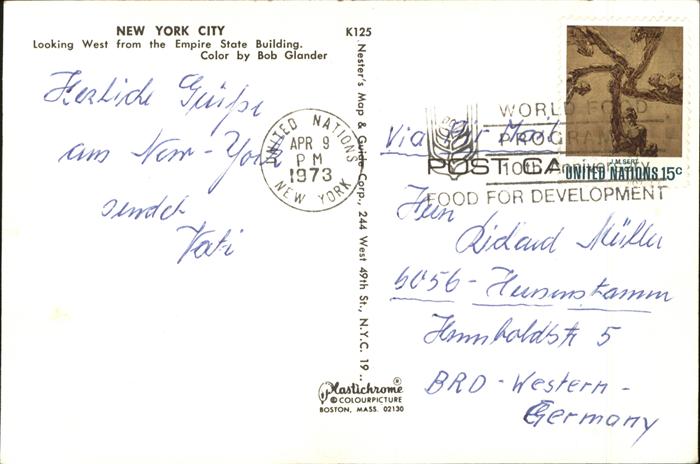 NEW YORK CITY
Looking West from the Empire State Building.
Color by Bob Glander
K125
Herzliche Grüße
aus New-York
sendet
Vati
UNITED NATIONS
APR 9
PM
1973
NEW YORK
Nester's Map & Guide Corp., 244 West 49th St., N.Y.C. 19 ..
Plastichrome®
© COLOURPICTURE
BOSTON, MASS. 02130
Via Air Mail
POST CA
WORLD FOOD
PROGRAMME
10th Anniversary
FOOD FOR DEVELOPMENT
J.M. SERT
UNITED NATIONS 15c
Herrn
Richard Müller
6056 - Heusenstamm
Humboldtstr 5
BRD - Western -
Germany